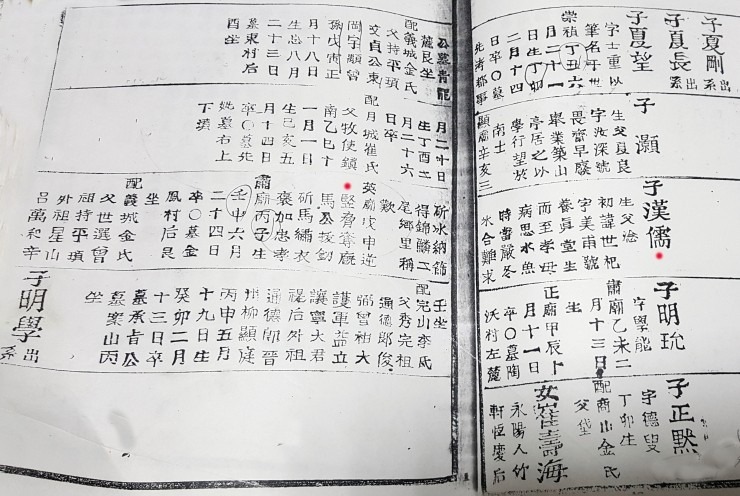 子夏剛 出系
子夏長 出系
子夏望
字士重以
筆名于世
崇禎丁丑六
月二十一
日生丁卯
二月十四
日卒〇墓
北渚都事
公墓靑龍
麓艮坐
配義城金氏
父持平瑱
文貞公東
岡宇顒曾
孫戊寅正
月十八日
生忌八月
二十三日
墓東村后
酉坐
子灝
生父良
字汝深號
畏齋早廢
擧業築山
亭居之以
學行望於
南士
顯廟辛亥三
月二十日
生丁酉二
月二十六
日卒
配月城崔氏
父牧使鎭
南乙巳十
一月一日
生己亥五
月十四日
卒〇墓先
妣墓右上
下墳
子漢儒
生父淰
初諱世杞
字美甫號
養眞堂生
而至孝母
病思水魚
時當嚴冬
氷合難求
斫氷納
得錦鱗二
尾鄕里稱
歎
英廟戊申逆
堅脅奪廐
馬公拔劍
斫馬繡衣
褒加忠孝
肅廟丙子生
壬申六月
二十四日
卒〇墓金
鳳村后艮
坐
配義城金氏
父世選曾
祖持平瑱
外祖星山
呂萬和辛
子明玧
字學能
肅廟乙未二
月十三日
生
正廟甲辰卜
月十一日
卒〇墓陶
沃村左麓
壬坐
配完山李氏
父秀完祖
通德郞俊
弼曾祖大
護軍益立
讓寧大君
禔后外祖
通德郞晉
州柳顯逵
丙申五月
十九日生
癸卯二月
十三日卒
墓承肯公
墓案山丙
坐
子明學 出系
子正黙
字德叟
丁卯生
配商山金氏
父垈
女崔壽海
永陽人竹
軒恒慶后